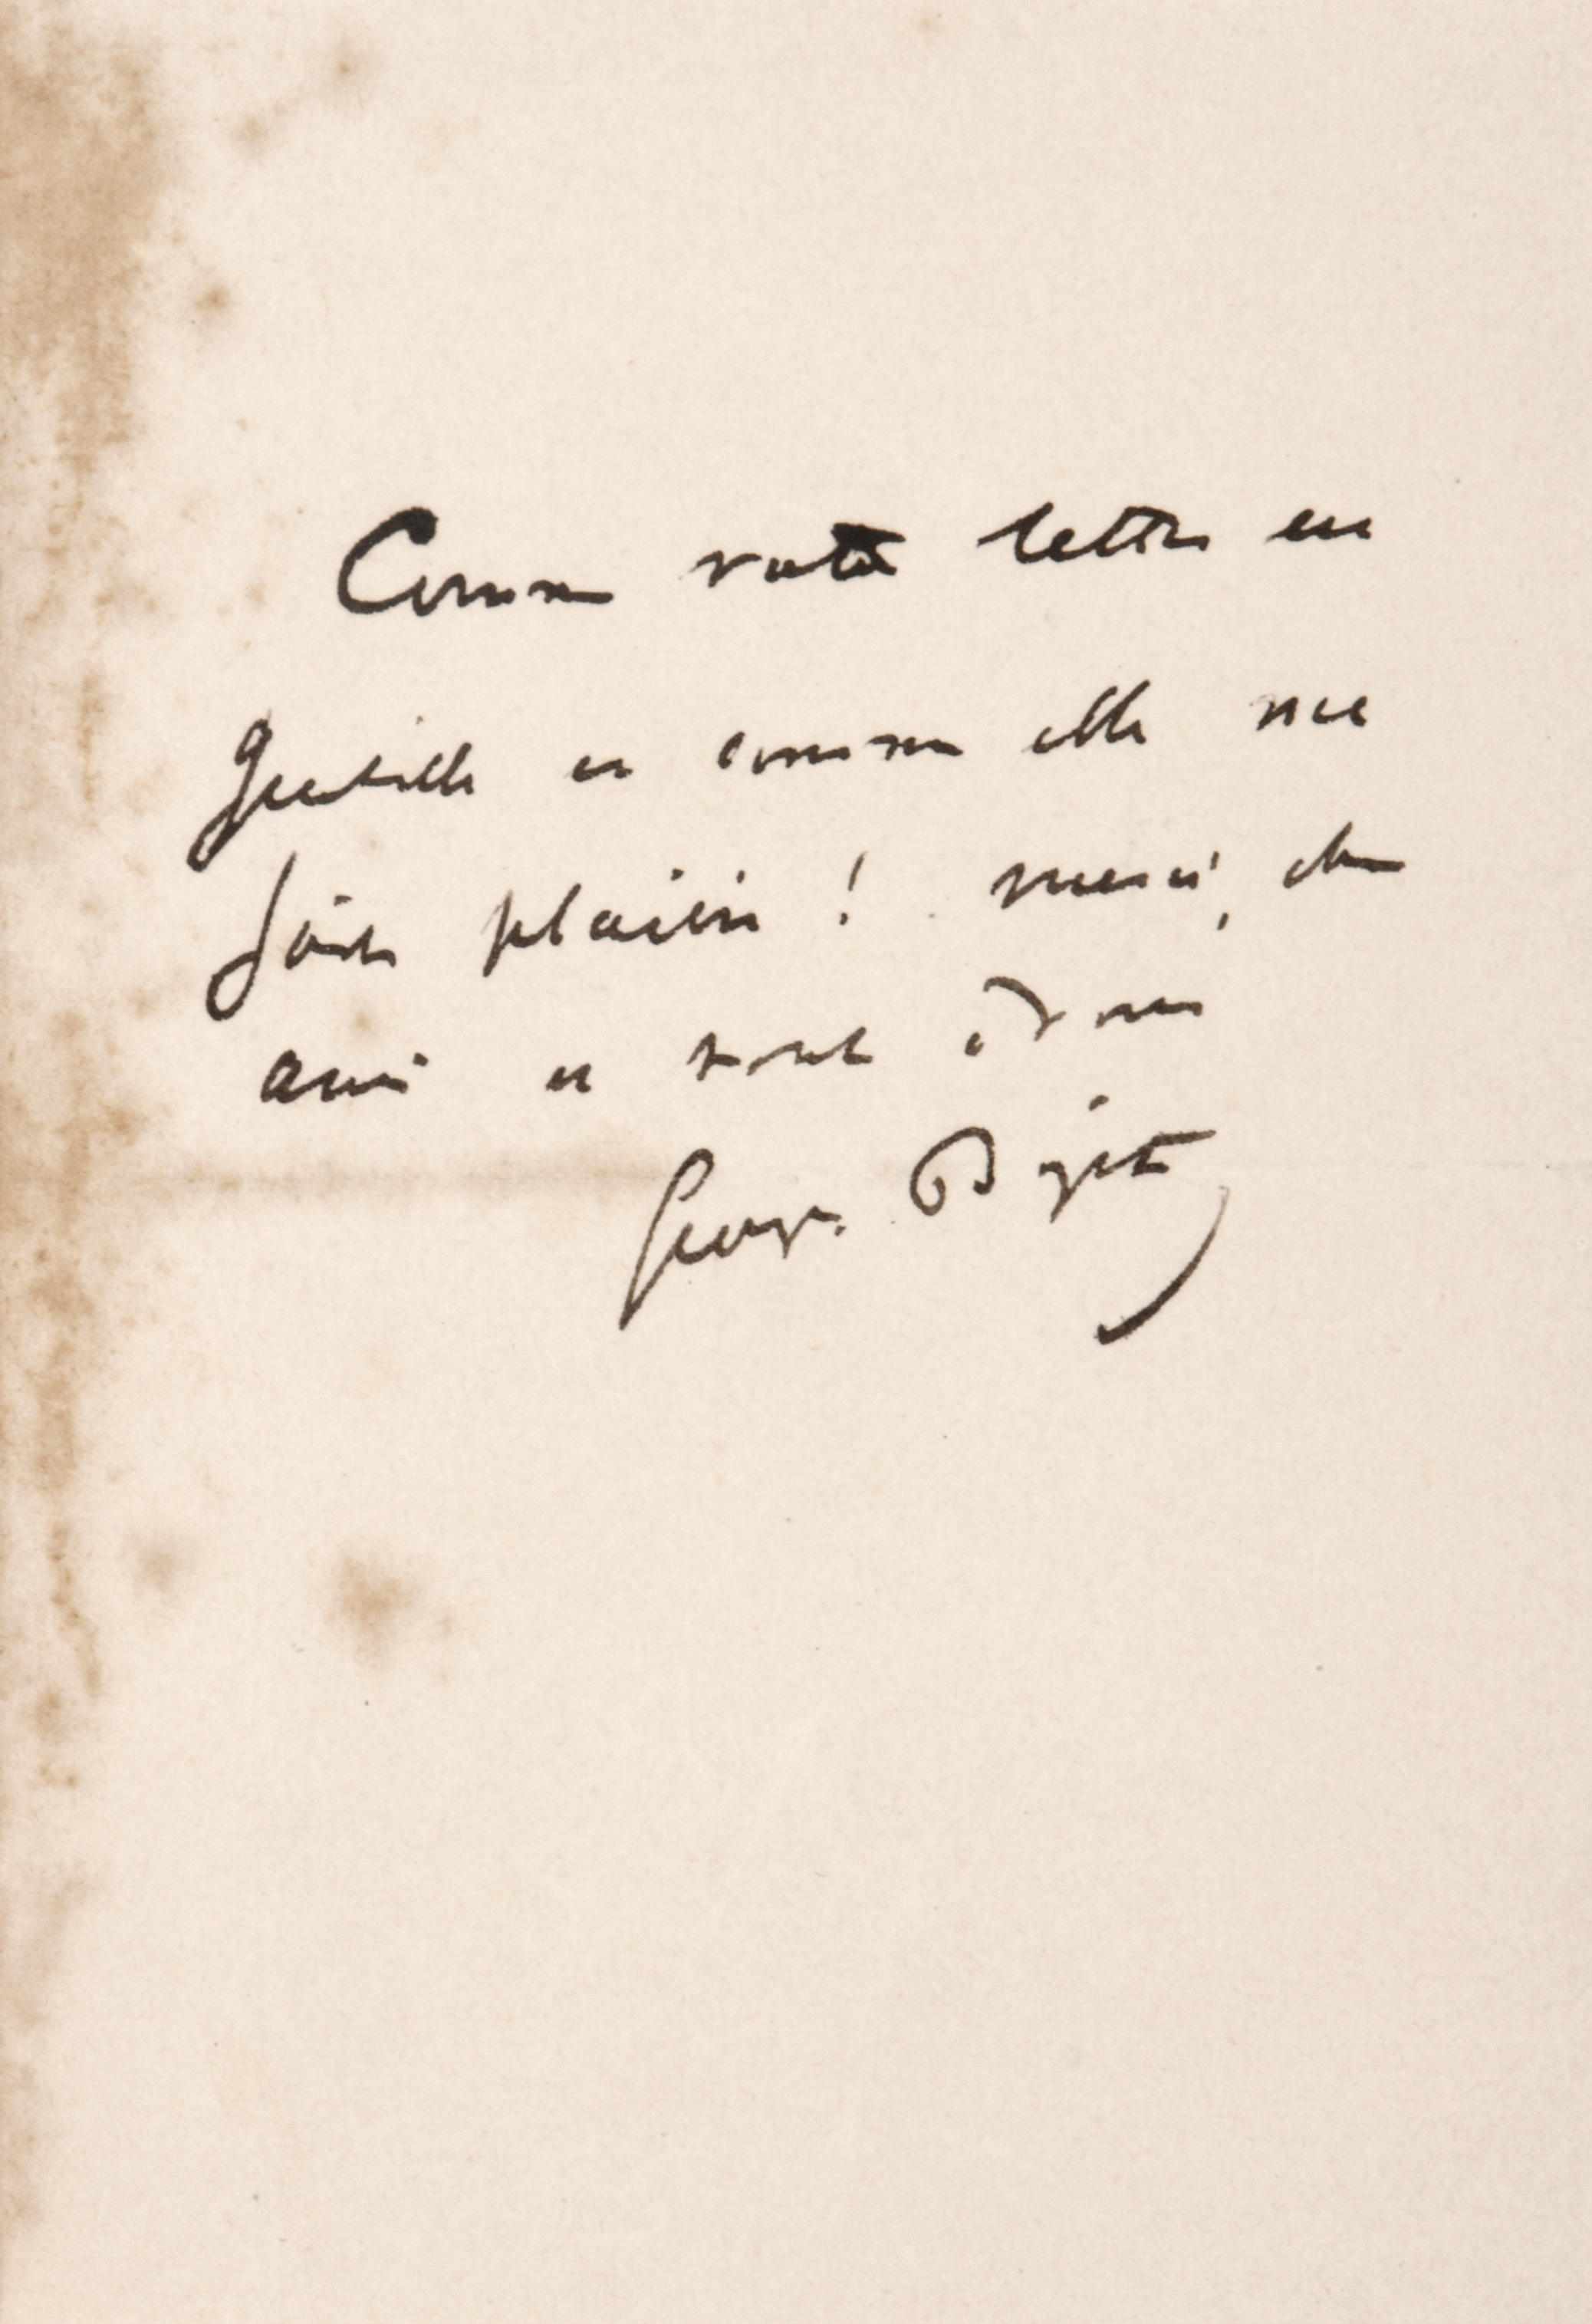 Comme votre lettre est
gentille et comme elle me
fait plaisir ! merci, cher
ami et tout à vous
Georges Bizet